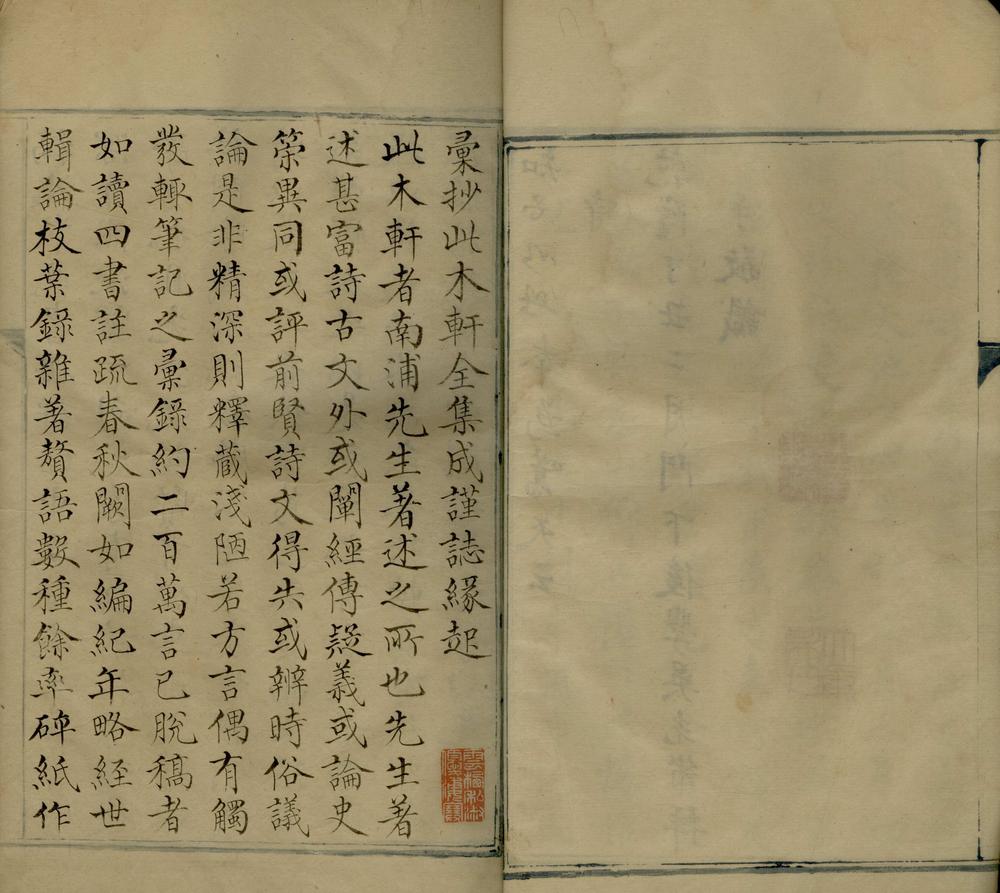 彙抄此木軒全集成謹誌緣起
此木軒者南浦先生著述之所也先生著
述甚富詩古文外或闡經傳疑義或論史
箓異同或評前賢詩文得失或辨時俗議
論是非精深則釋蔵淺陋若方言偶有觸
發輒筆記之彙錄約二百萬言已脫稿者
如讀四書註疏春秋闕如編紀年略經世
輯論枝葉錄雜著贅語數種餘率碎紙作